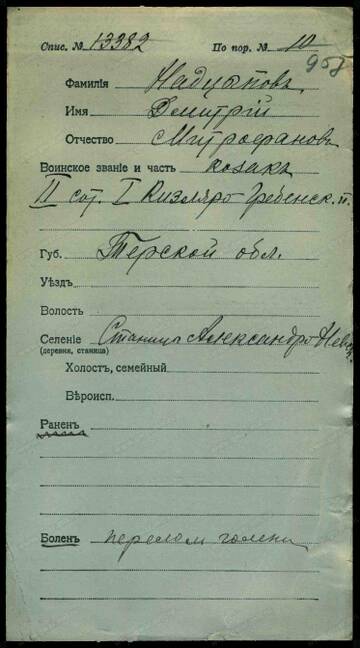 Спис. № 13382 По пор. № 10
958
Фамилія
Имя Дмитрій
Отчество Митрофановъ
Воинское званіе и часть козакъ
II сот. I Кизляро Гребенск. п.
Губ. Терской обл.
Уѣздъ
Волость
Селеніе Станица Александро Невск.
(деревня, станица)
Холостъ, семейный
Вѣроисп.
Раненъ
Боленъ перелом голени